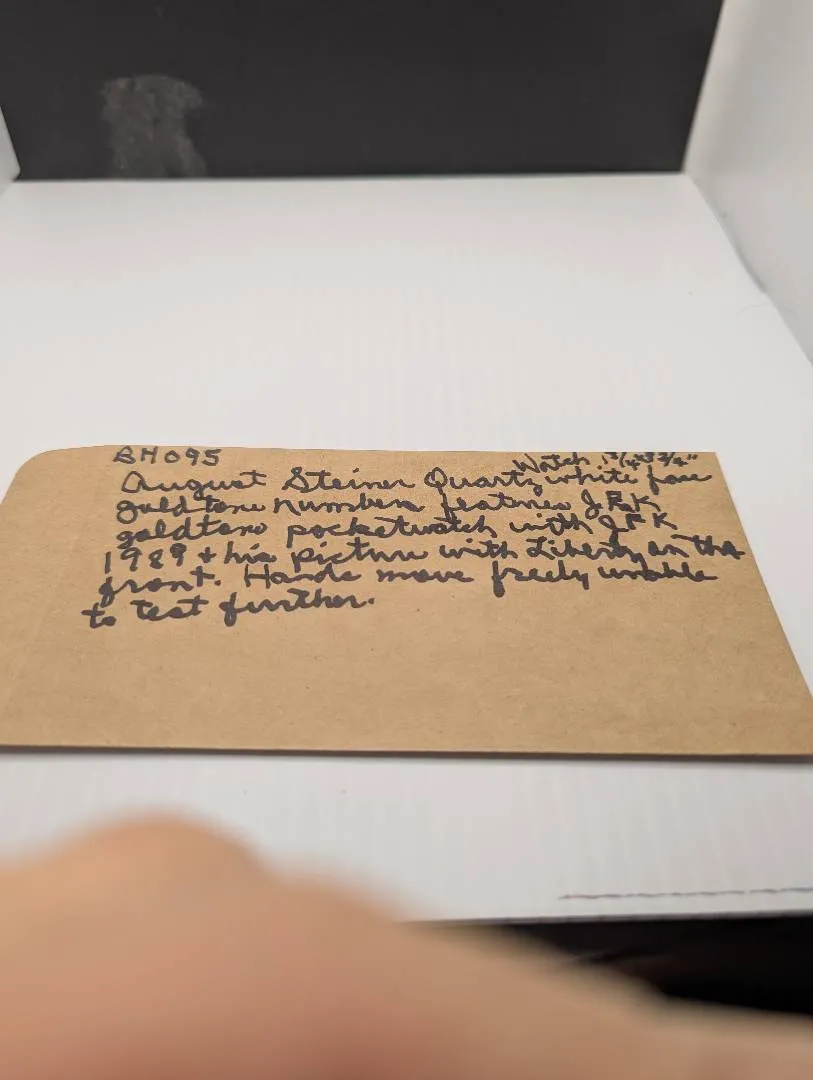 BH095
Watch 1 3/4" x 1 3/4"
August Steiner Quartz white face
goldtone numbers features J.F.K
goldtone pocketwatch with JFK
1989 + his picture with Liberty on the
front. Hands move freely unable
to test further.